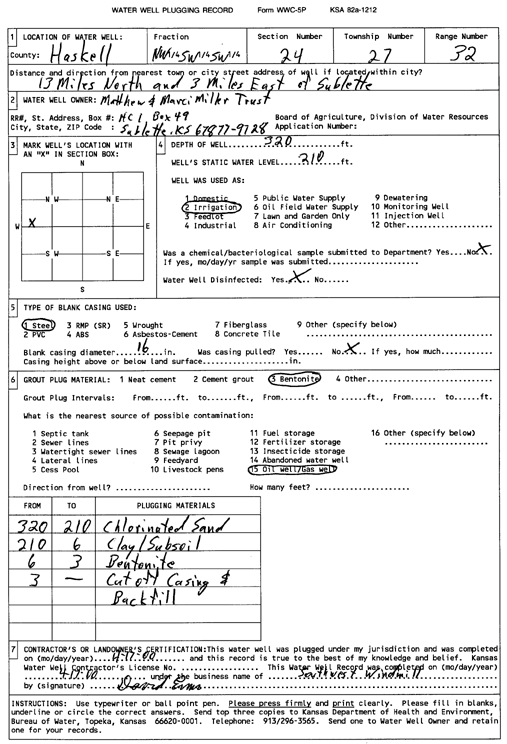 WATER WELL PLUGGING RECORD Form WWC-5P KSA 82a-1212
1 LOCATION OF WATER WELL: Fraction Section Number Township Number Range Number
County: Haskell NW 1/4 SW 1/4 SW 1/4 24 27 32
Distance and direction from nearest town or city street address of well if located within city?
13 Miles North and 3 Miles East of Sublette
2 WATER WELL OWNER: Matthew & Marci Milkr Trust
RR#, St. Address, Box #: HC 1 Box 49 Board of Agriculture, Division of Water Resources
City, State, ZIP Code : Sublette, KS 67877-9728 Application Number:
3 MARK WELL'S LOCATION WITH AN "X" IN SECTION BOX:
N
N W N E
W X E
S W S E
S
4 DEPTH OF WELL.....320.....ft.
WELL'S STATIC WATER LEVEL....210....ft.
WELL WAS USED AS:
1 Domestic 5 Public Water Supply 9 Dewatering
2 Irrigation 6 Oil Field Water Supply 10 Monitoring Well
3 Feedlot 7 Lawn and Garden Only 11 Injection Well
4 Industrial 8 Air Conditioning 12 Other..........
Was a chemical/bacteriological sample submitted to Department? Yes....No X..
If yes, mo/day/yr sample was submitted....................
Water Well Disinfected: Yes..X.. No......
5 TYPE OF BLANK CASING USED:
1 Steel 3 RMP (SR) 5 Wrought 7 Fiberglass 9 Other (specify below)
2 PVC 4 ABS 6 Asbestos-Cement 8 Concrete Tile ....................
Blank casing diameter....16....in. Was casing pulled? Yes...... No.X... If yes, how much..........
Casing height above or below land surface....................in.
6 GROUT PLUG MATERIAL: 1 Neat cement 2 Cement grout 3 Bentonite 4 Other....................
Grout Plug Intervals: From......ft. to......ft., From...... to ......ft., From...... to......ft.
What is the nearest source of possible contamination:
1 Septic tank 6 Seepage pit 11 Fuel storage 16 Other (specify below)
2 Sewer lines 7 Pit privy 12 Fertilizer storage ....................
3 Watertight sewer lines 8 Sewage lagoon 13 Insecticide storage
4 Lateral lines 9 Feedyard 14 Abandoned water well
5 Cess Pool 10 Livestock pens 15 Oil well/Gas well
Direction from well? .................... How many feet? ....................
FROM TO PLUGGING MATERIALS
320 210 Chlorinated Sand
210 6 Clay/Subsoil
6 3 Bentonite
3 — Cut off Casing &
Backfill
7 CONTRACTOR'S OR LANDOWNER'S CERTIFICATION:This water well was plugged under my jurisdiction and was completed
on (mo/day/year)....4-17-00.... and this record is true to the best of my knowledge and belief. Kansas
Water Well Contractor's License No. .................... This Water Well Record was completed on (mo/day/year)
4-17-00 under the business name of Southwest Windmill
by (signature)
INSTRUCTIONS: Use typewriter or ball point pen. Please press firmly and print clearly. Please fill in blanks,
underline or circle the correct answers. Send top three copies to Kansas Department of Health and Environment,
Bureau of Water, Topeka, Kansas 66620-0001. Telephone: 913/296-3565. Send one to Water Well Owner and retain
one for your records.